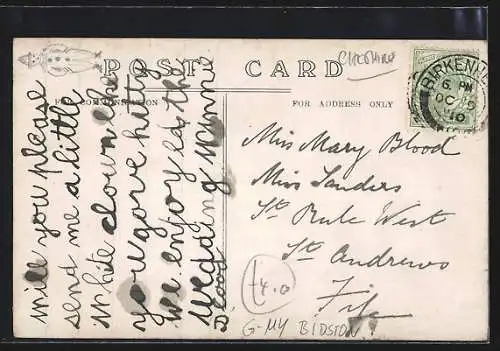 POST CARD
FOR COMMUNICATION
FOR ADDRESS ONLY
CHESHIRE
BIRKENHE
6. PM
OC
10
will you please
send me a little
white down like
you gove kitty
we enjoy ed the
wedding Wynnie
Blood
Miss Mary Blood
Miss Sanders
St. Rule West
St. Andrews
Fife
£4.0
G-MY BIDSTON.